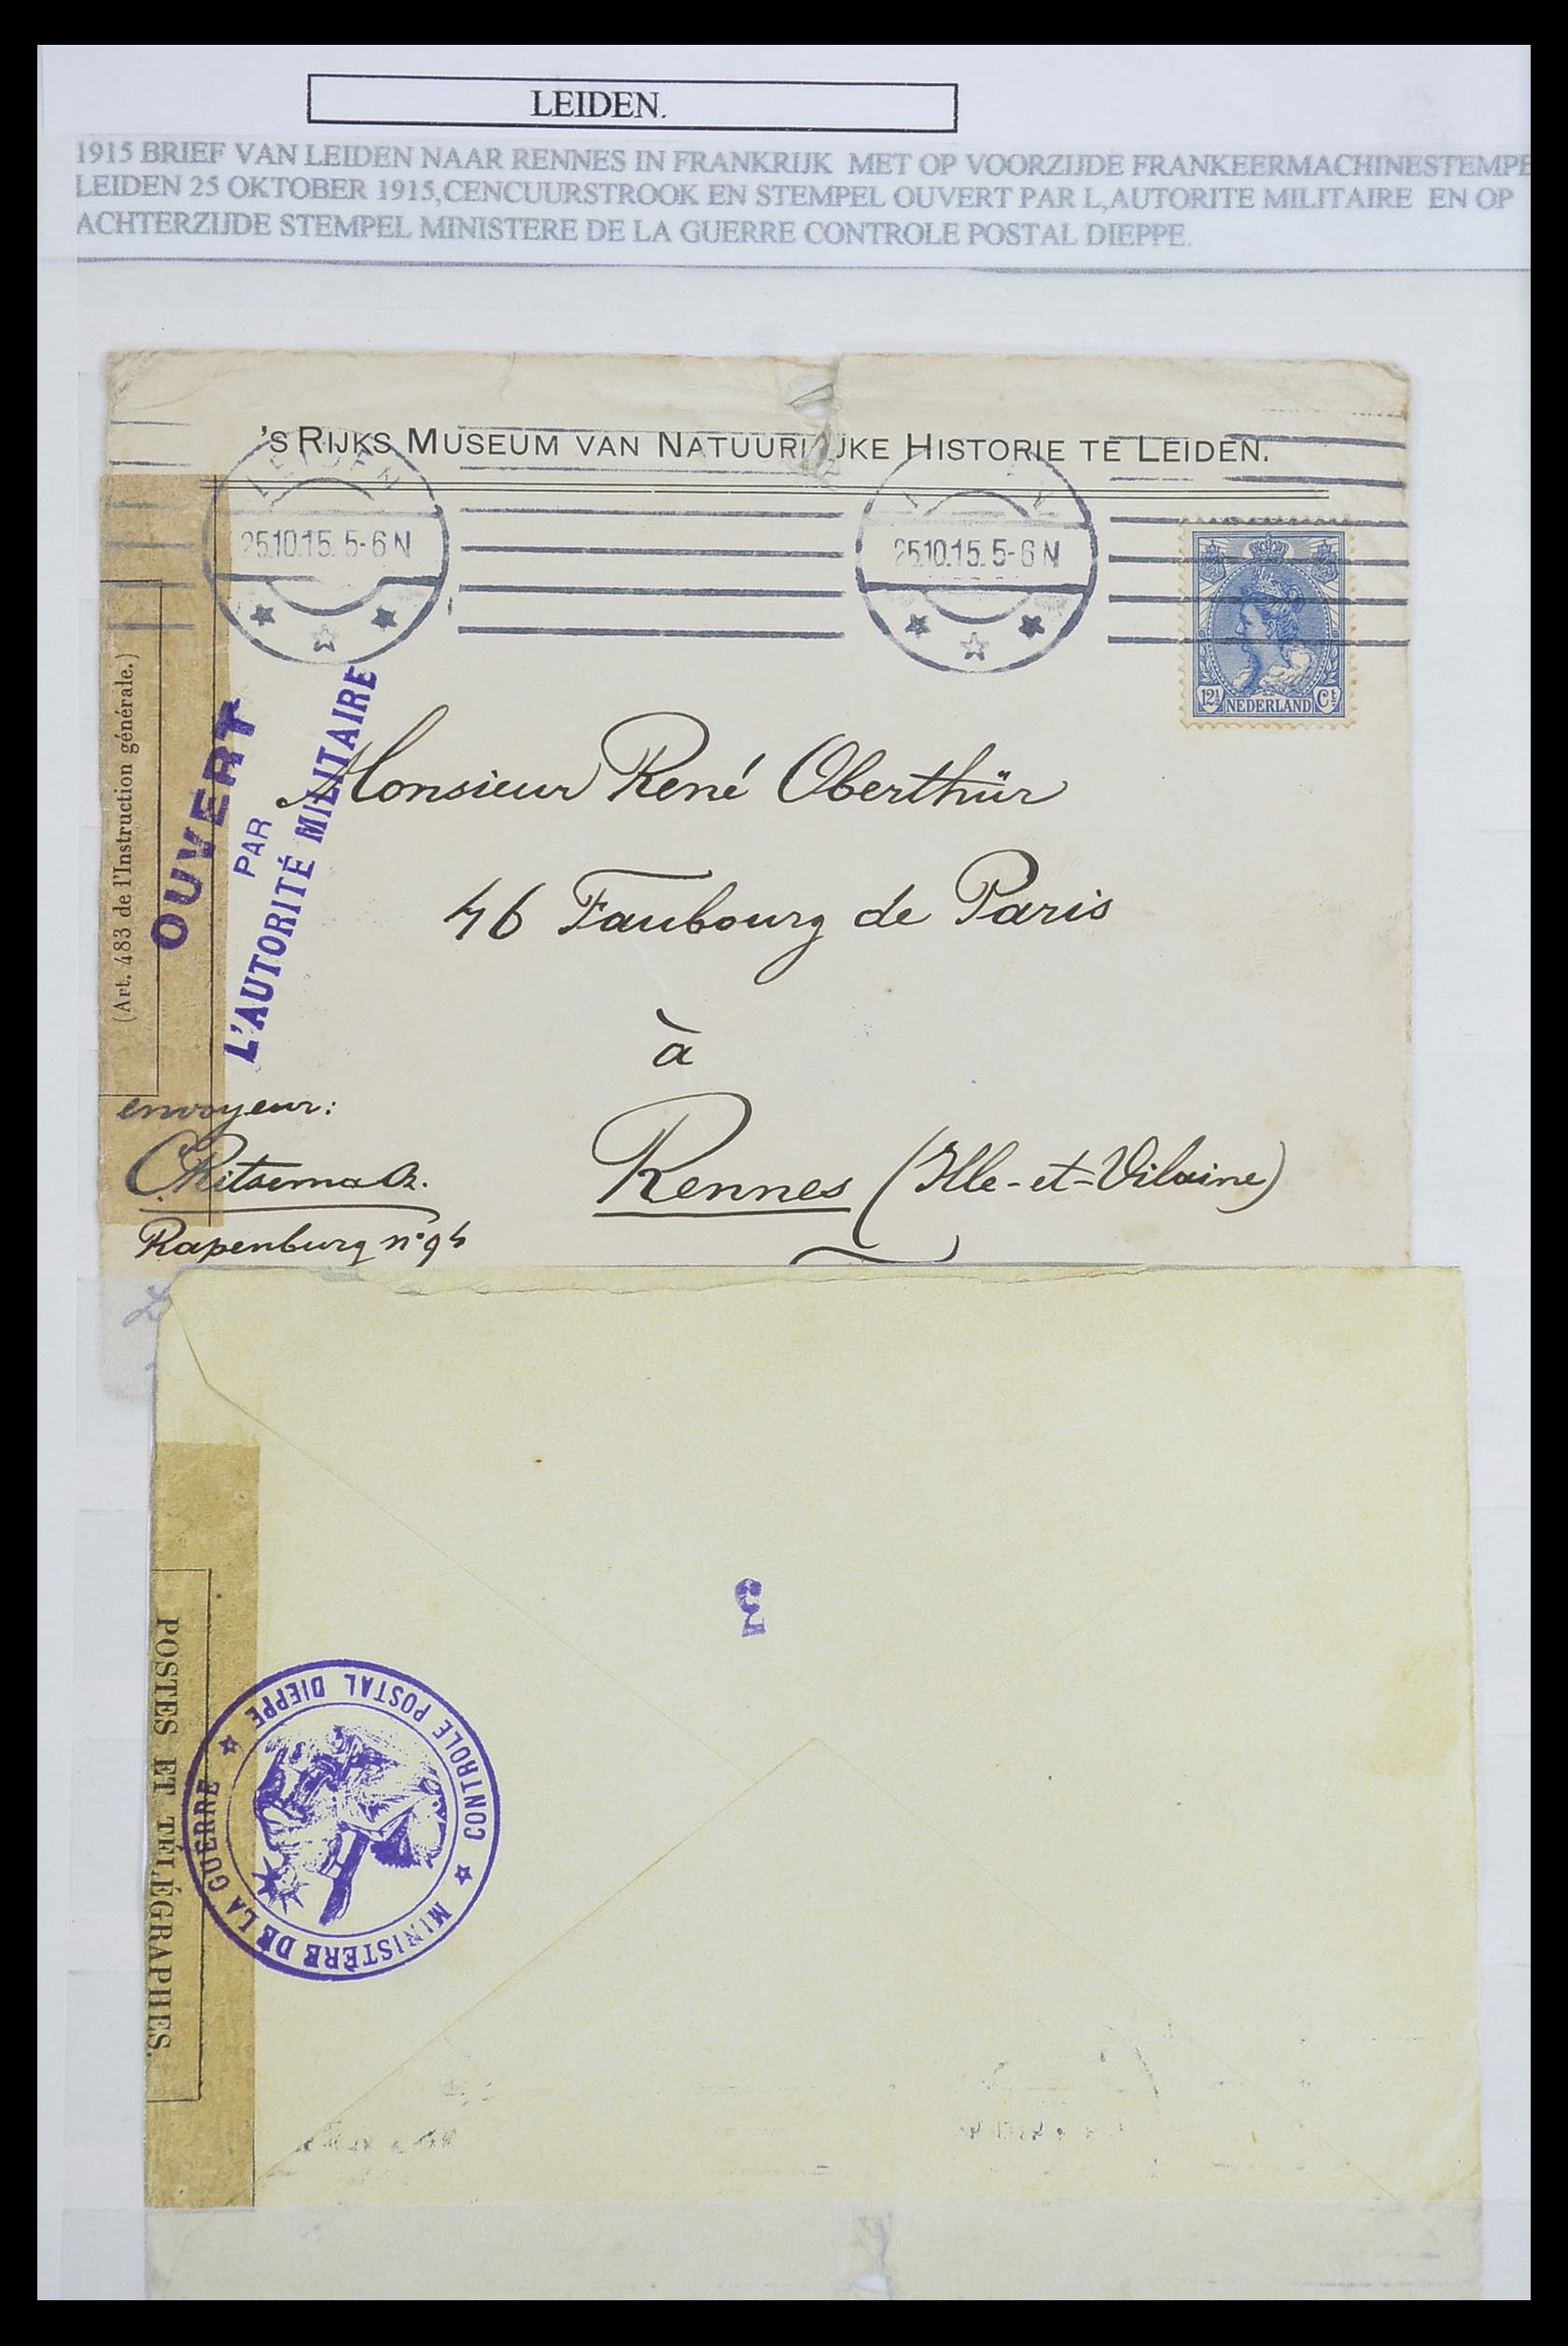 LEIDEN.
1915 BRIEF VAN LEIDEN NAAR RENNES IN FRANKRIJK MET OP VOORZIJDE FRANKEERMACHINESTEMPE
LEIDEN 25 OKTOBER 1915,CENCUURSTROOK EN STEMPEL OUVERT PAR L,AUTORITE MILITAIRE EN OP
ACHTERZIJDE STEMPEL MINISTERE DE LA GUERRE CONTROLE POSTAL DIEPPE.
'S RIJKS MUSEUM VAN NATUURLIJKE HISTORIE TE LEIDEN.
LEIDEN
25.10.15. 5-6 N
25.10.15. 5-6 N
12½ NEDERLAND Ct
(Art. 483 de l'Instruction générale.)
OUVERT
PAR
L'AUTORITÉ MILITAIRE
Monsieur René Oberthür
46 Faubourg de Paris
à
Rennes (Ille-et-Vilaine)
envoyeur:
C. Ritsema Cz.
Rapenburg no 94
3
POSTES ET TÉLÉGRAPHES.
CONTROLE POSTAL DIEPPE
MINISTÈRE DE LA GUERRE